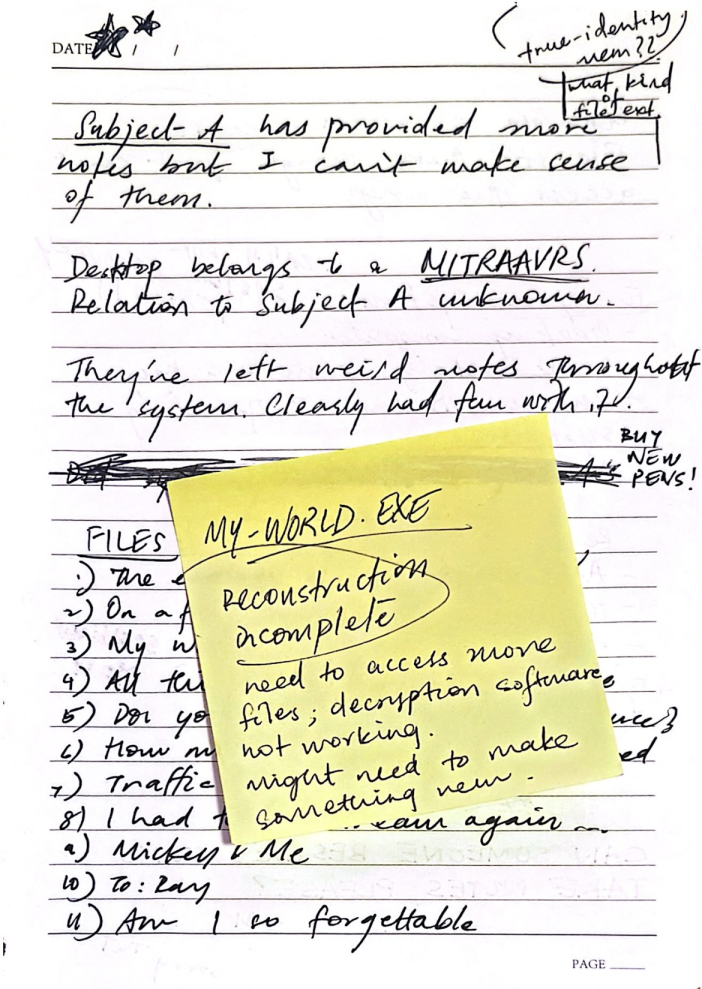 DATE / /
true-identity
.nem??
what kind
of
file ext.
Subject-A has provided more
notes but I can't make sense
of them.
Desktop belongs to a MITRAAVRS.
Relation to Subject A unknown.
They've left weird notes throughout
the system. Clearly had fun with it.
BUY
NEW
PENS!
FILES
1) The
2) On a
3) My
4) All
5) Do yo
6) How
7) Traffic
8) I had again
9) Mickey & Me
10) To: Ray
11) Am I so forgettable
MY-WORLD.EXE
reconstruction
incomplete
need to access more
files; decryption software
not working.
might need to make
something new.
PAGE